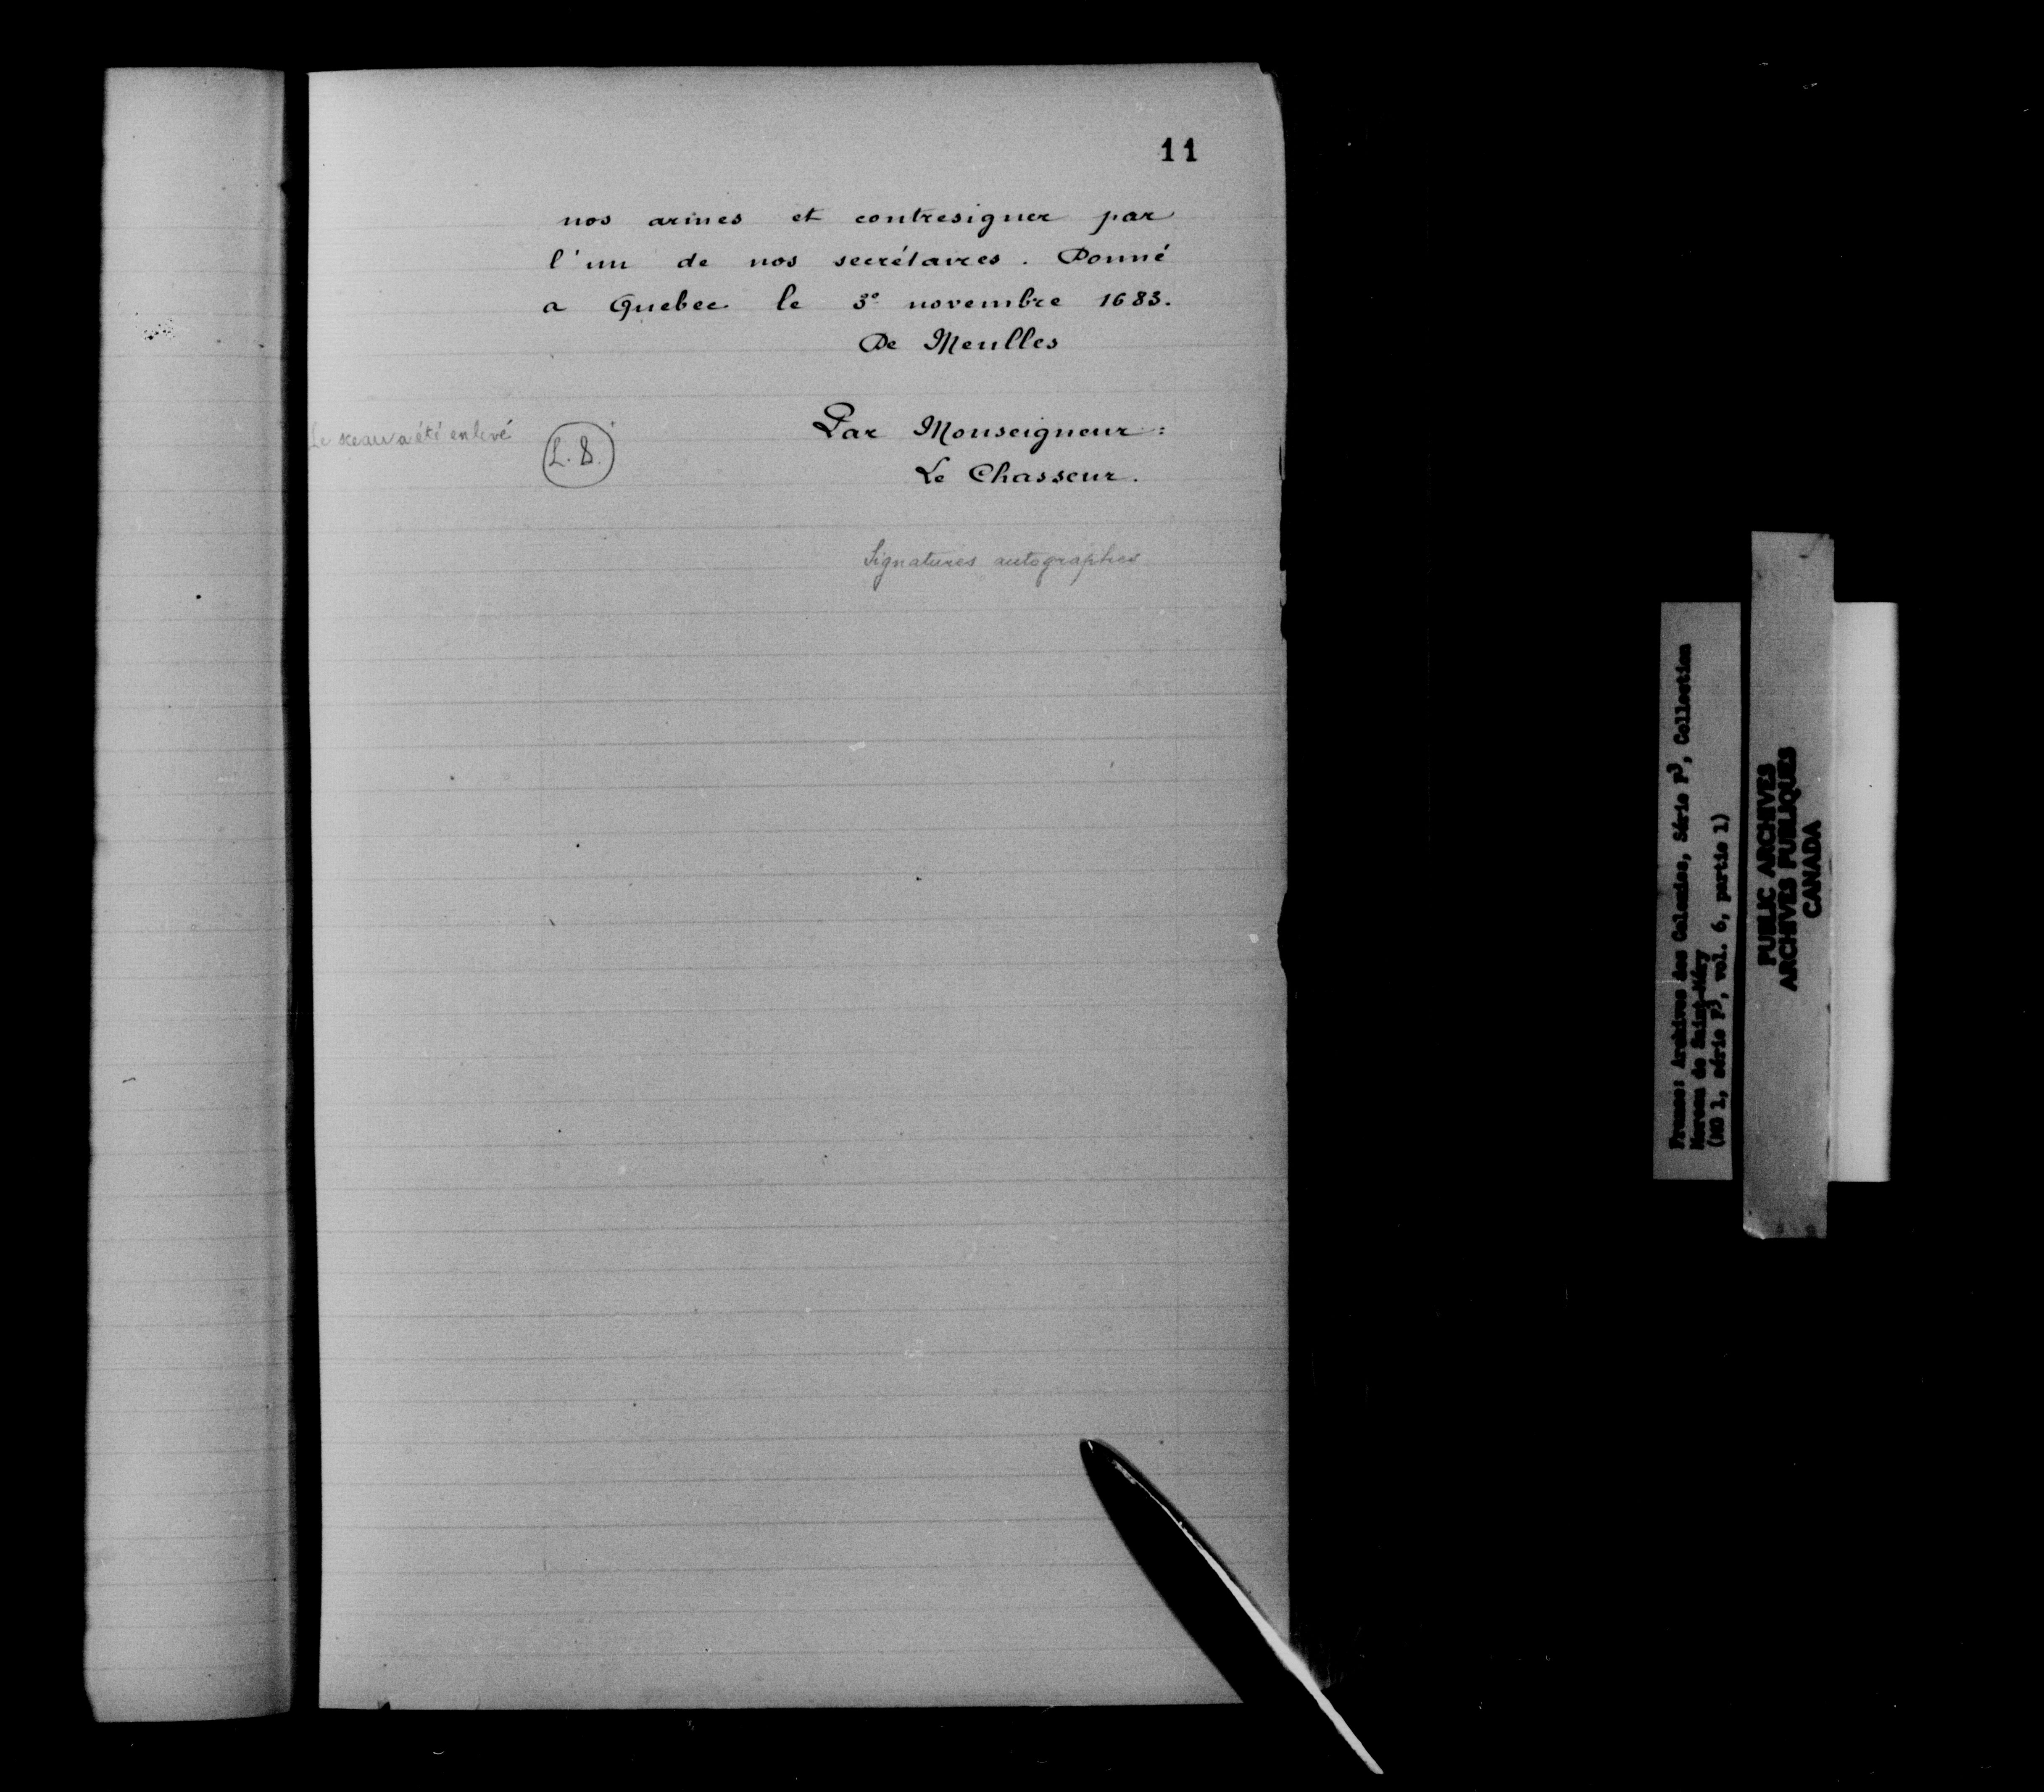 11
nos armes et contresigner par
l'un de nos secrétaires. Donné
a Quebec le 3e novembre 1683.
De Meulles
Par Monseigneur:
Le sceau a été enlevé
L. S.
Le Chasseur.
Signatures autographes
France: Archives des Colonies, Série F3, Collection
Moreau de Saint-Méry
(MG 1, série F3, vol. 6, partie 1)
PUBLIC ARCHIVES
ARCHIVES PUBLIQUES
CANADA